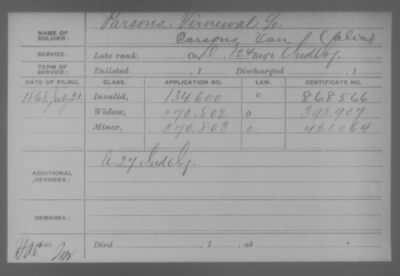 NAME OF SOLDIER: Parsons, G.
Parsons, (alias)
SERVICE: Late rank, Co. D, 124 Regt Ind Inf.
TERM OF SERVICE: Enlisted , 1 Discharged , 1
DATE OF FILING. CLASS. APPLICATION NO. LAW. CERTIFICATE NO.
1868 July 31 Invalid, 134.600 0 868566
Widow, 570.802 0 393.907
Minor, 570.803 0 421.064
ADDITIONAL SERVICES: A. 27 Ind Inf
REMARKS:
Died , 1 , at